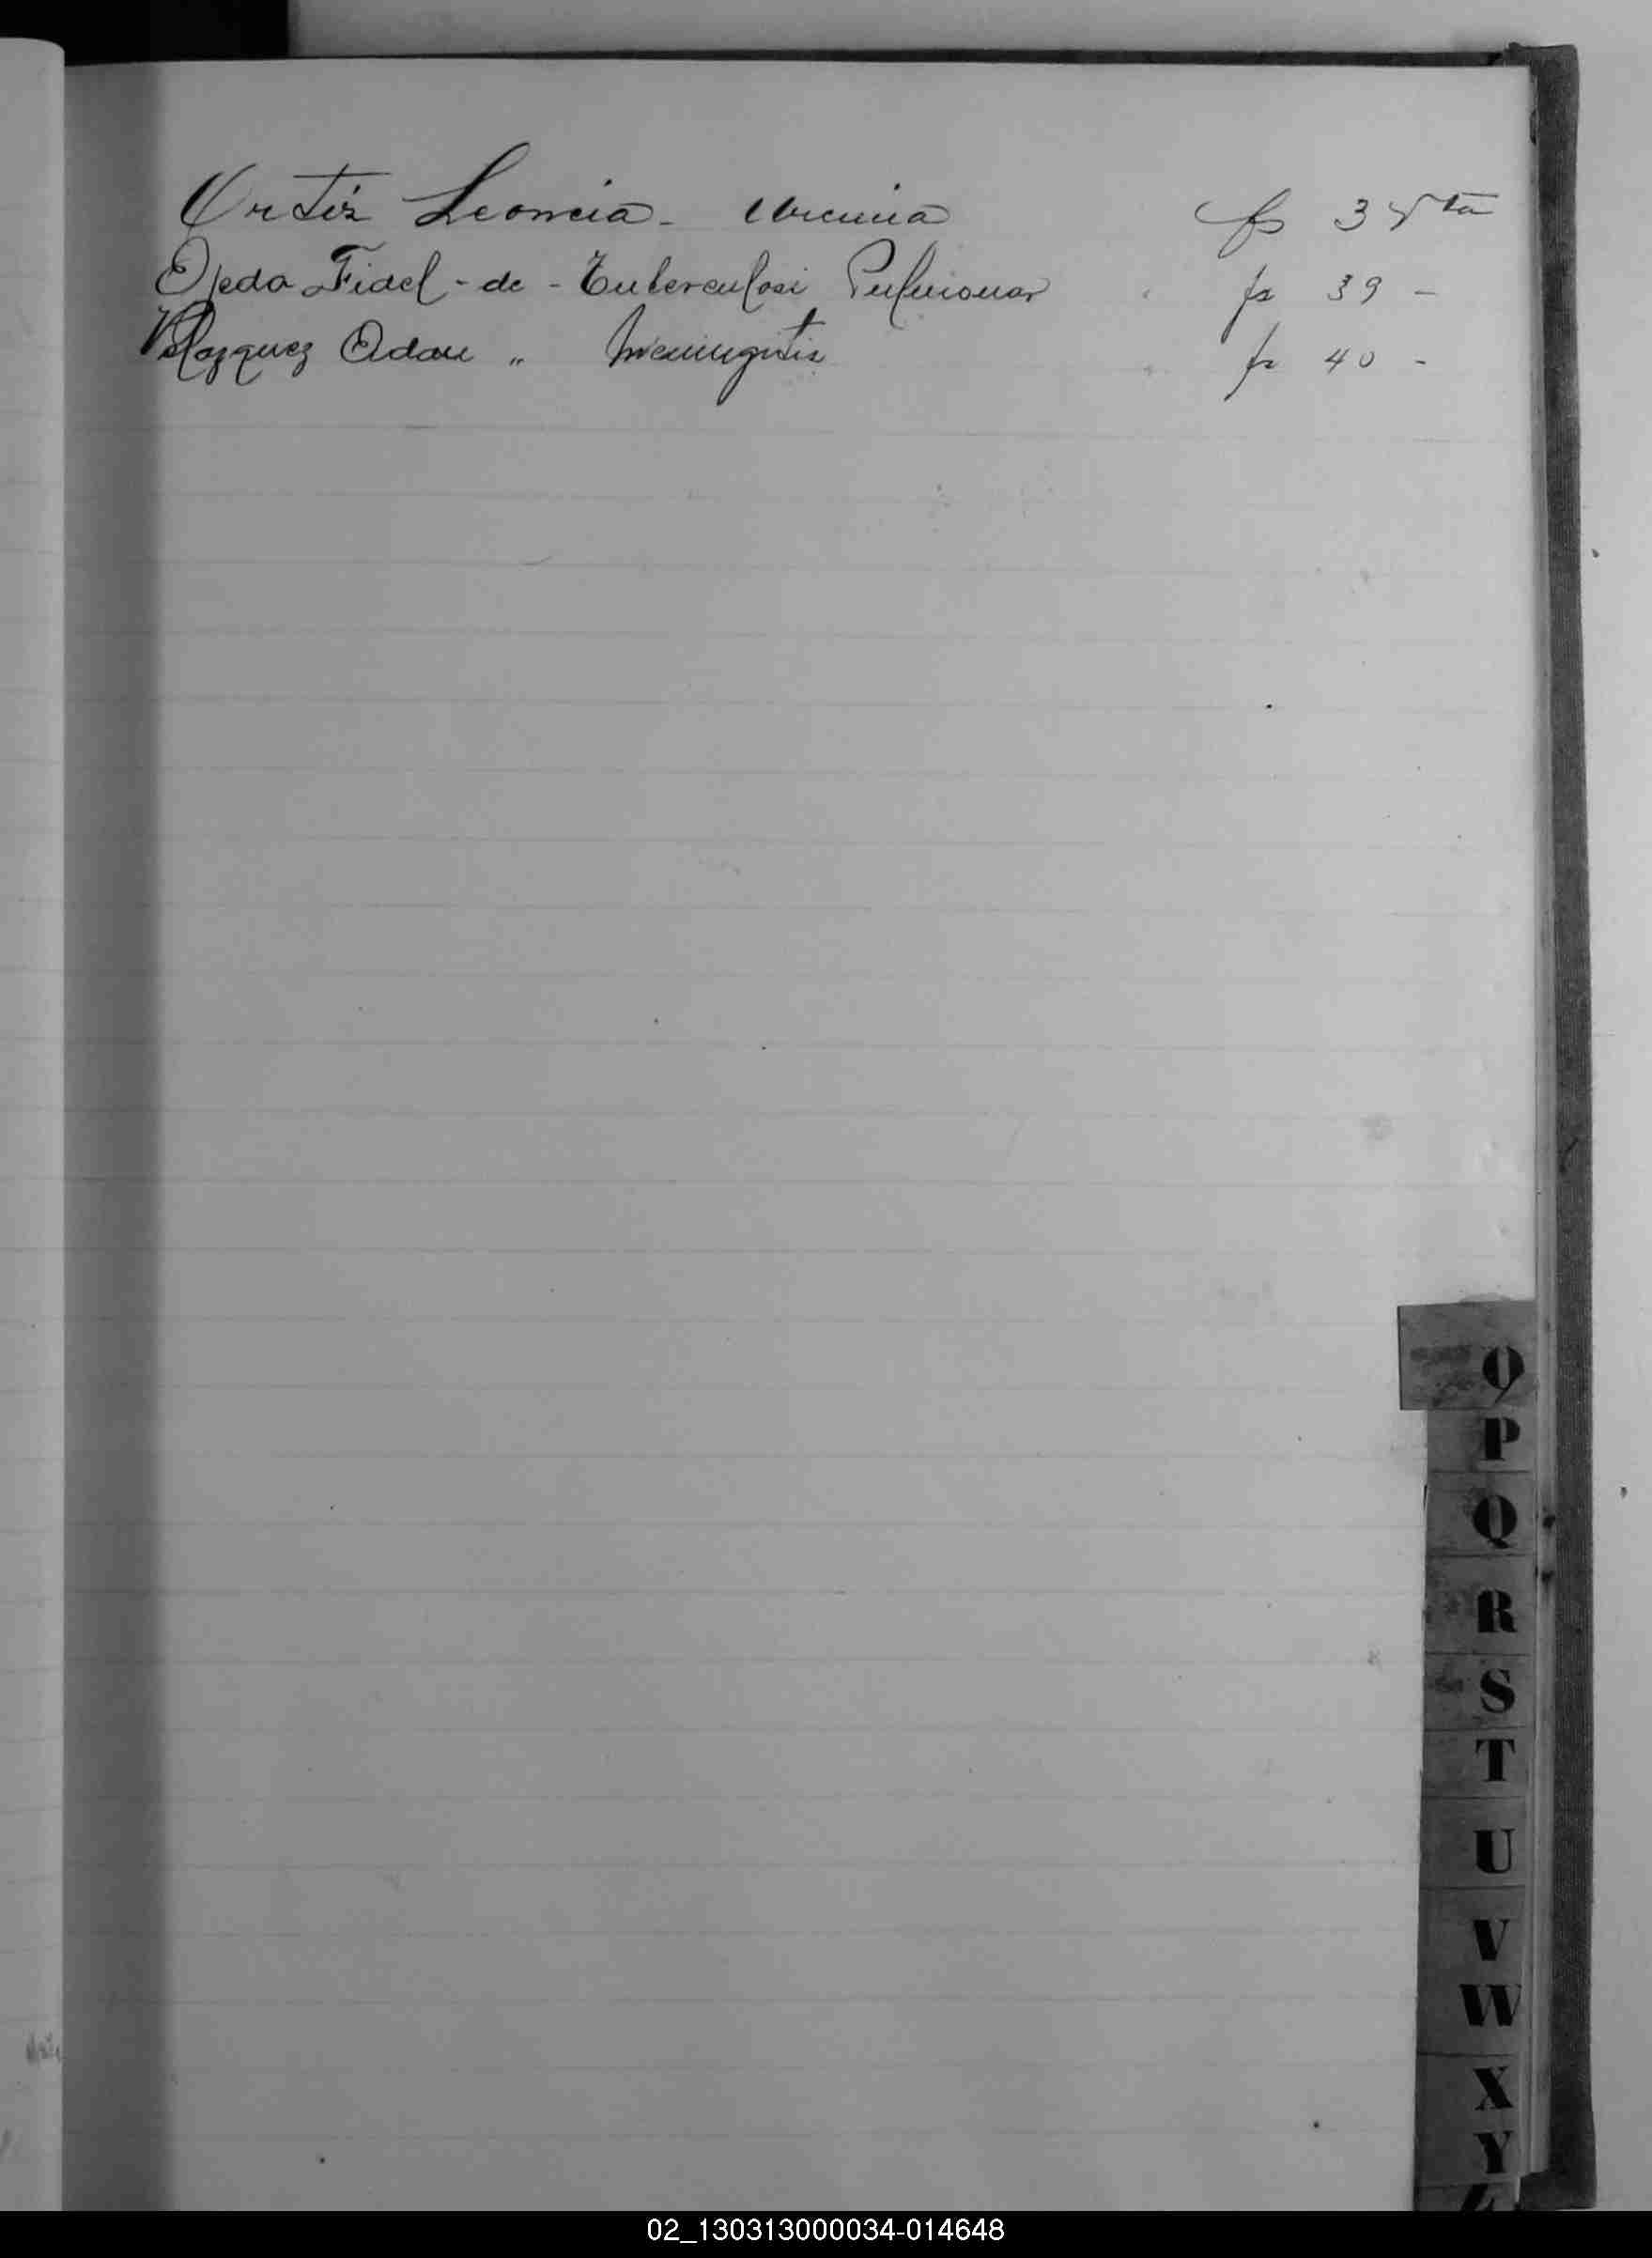 Ortíz Leoncia - Uremia fs 3 vta
Ojeda Fidel - de - Tuberculosi Pulmonar fs 39 -
Velazquez Adan „ Meningitis fs 40 -
O
P
Q
R
S
T
U
V
W
X
Y
Z
02_130313000034-014648